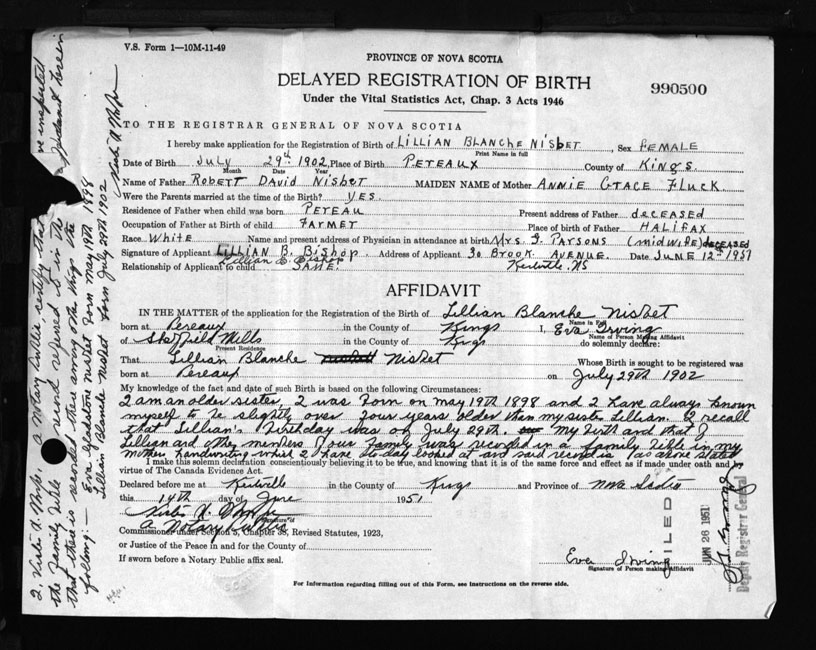 V.S. Form 1—10M-11-49
PROVINCE OF NOVA SCOTIA
DELAYED REGISTRATION OF BIRTH
990500
Under the Vital Statistics Act, Chap. 3 Acts 1946
TO THE REGISTRAR GENERAL OF NOVA SCOTIA
I hereby make application for the Registration of Birth of LILLIAN BLANCHE NISBET, Sex FEMALE
Print Name in full
Date of Birth July 29th 1902, Place of Birth PEREAUX County of KINGS.
Month Date Year
Name of Father ROBERT DAVID NISBET MAIDEN NAME of Mother ANNIE GRACE FLUCK
Were the Parents married at the time of Birth? YES.
Residence of Father when child was born PEREAU Present address of Father deceased
Occupation of Father at Birth of child FARMER Place of birth of Father HALIFAX
Race White Name and present address of Physician in attendance at birth Mrs. J. PARSONS (midwife) deceased
Signature of Applicant LILLIAN B. BISHOP. Address of Applicant 30 BROOK AVENUE. Date JUNE 12th 1951
Lillian B. Bishop Kentville, NS
Relationship of Applicant to child SAME.
AFFIDAVIT
IN THE MATTER of the application for the Registration of the Birth of Lillian Blanche Nisbet
Name in Full
born at Pereaux in the County of Kings I, Eva Irving
Name of Person Making Affidavit
of Sheffield Mills in the County of Kings do solemnly declare:
Present Residence
That Lillian Blanche Nisbet Whose Birth is sought to be registered was
born at Pereaux on July 29th 1902
My knowledge of the fact and date of such Birth is based on the following Circumstances:
I am an older sister, I was born on May 19th 1898 and I have always known
myself to be slightly over four years older than my sister Lillian. I recall
that Lillian's birthday was on July 29th. My birth and that of
Lillian and other members of our family was recorded in a family Bible in my
mothers handwriting which I have to-day looked at and said record is as above stated
I make this solemn declaration conscientiously believing it to be true, and knowing that it is of the same force and effect as if made under oath and by
virtue of The Canada Evidence Act.
Declared before me at Kentville in the County of Kings and Province of Nova Scotia
this 14th day of June 1951
Signature of
A Notary Public
Commissioner under Section 5, Chapter 38, Revised Statutes, 1923,
or Justice of the Peace in and for the County of
If sworn before a Notary Public affix seal.
Eva Irving
Signature of Person making Affidavit
For Information regarding filling out of this Form, see Instructions on the reverse side.
FILED
JUN 26 1951
Deputy Registrar General
a Notary Public certify that
the family Bible record referred to in the
that there is recorded there among other things the
following:— Eva Gladstone Nisbet born May 19th 1898
Lillian Blanche Nisbet born July 29th 1902